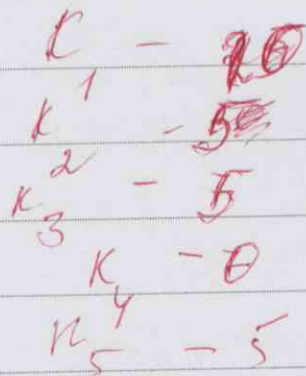 K1 -
K2 - 5
K3 - 5
K4 - 0
K5 - 5